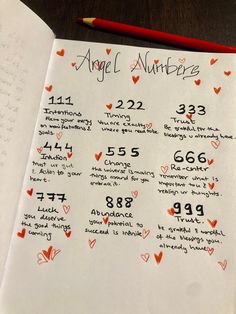 Angel Numbers
111
Intentions
Keep your energy
on manifestations &
goals
222
Timing
You are exactly
where you need to be
333
Trust
Be grateful for the
blessings u already have.
444
Intuition
Trust ur gut
& listen to your
heart
555
Change
The universe is
moving things
around for you
embrace it.
666
Re-center
Remember what is
important to u &
realign ur thoughts.
777
Luck
you deserve
the good things
coming
888
Abundance
your potential to
succeed is infinite
999
Trust
be grateful & mindful
of the blessings you
already have